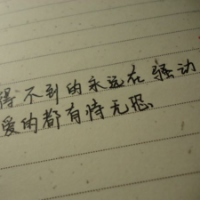 得不到的永远在骚动
爱的都有恃无恐